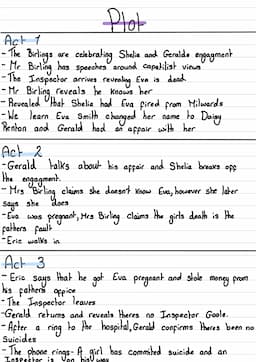 Plot
Act 1
- The Birlings are celebrating Shelia and Geralds engagment
- Mr Birling has speeches around capatilist views
- The Inspector arrives revealing Eva is dead
- Mr Birling reveals he knows her
- Revealed that Shelia had Eva fired from Milwards
- We learn Eva Smith changed her name to Daisy
Renton and Gerald had an affair with her
Act 2
- Gerald talks about his affair and Shelia breaks off
the engagment.
- Mrs Birling claims she doesn't know Eva, however she later
says she does
- Eva was pregnant, Mrs Birling claims the girls death is the
fathers fault
- Eric walks in
Act 3
- Eric says that he got Eva pregnant and stole money from
his fathers office
- The Inspector leaves
- Gerald returns and reveals theres no Inspector Goole.
- After a ring to the hospital, Gerald confirms theres been no
Suicides
- The phone rings- A girl has commited suicide and an
Inspector is on his way